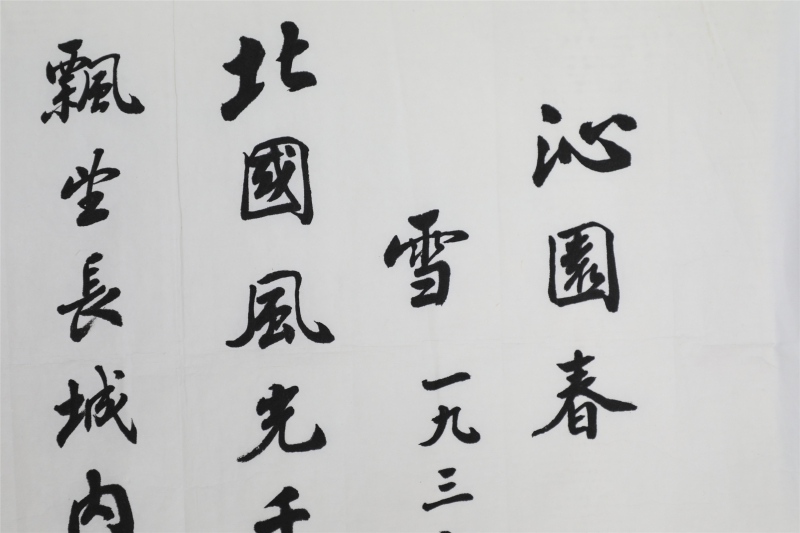 沁園春
雪
一九三
北國風光千
飄望長城内